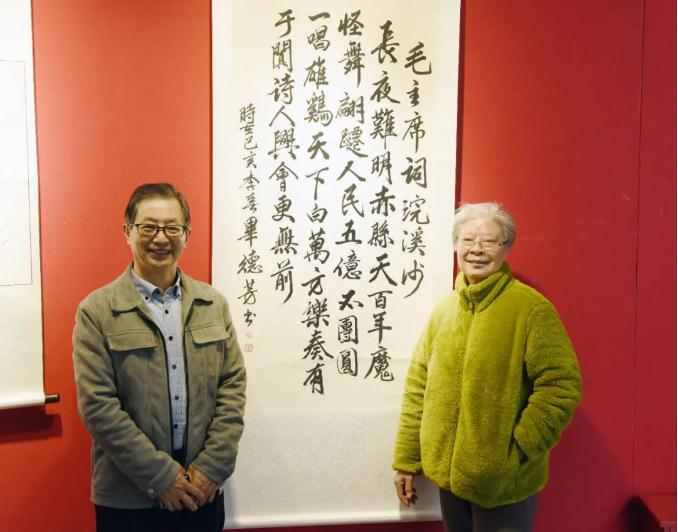 毛主席詞浣溪沙
長夜難明赤縣天百年魔
怪舞翩躚人民五億不團圓
一唱雄鷄天下白萬方樂奏有
于闐詩人興會更無前
時己亥季春畢德芳书